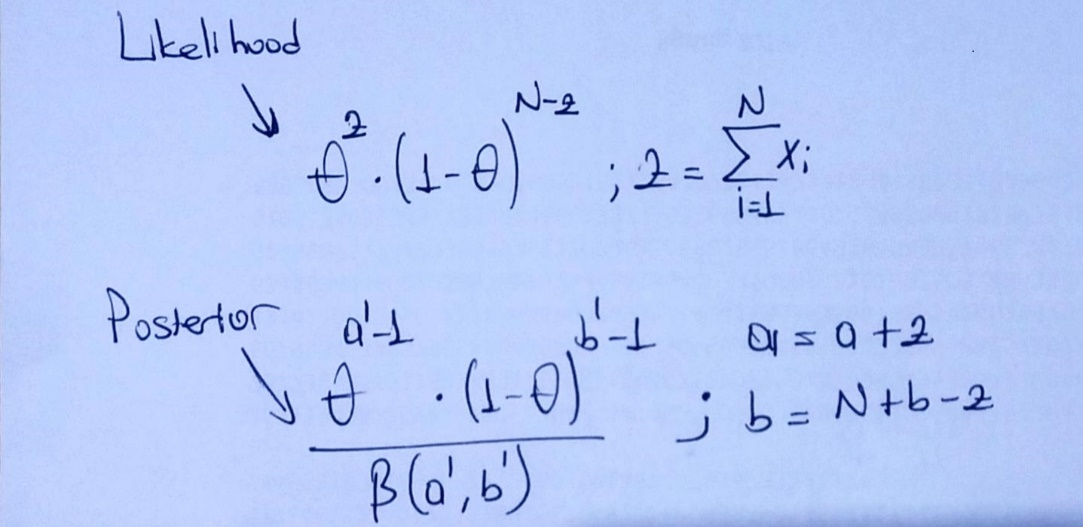 Likelihood
θ^z · (1-θ)^(N-z) ; z = ∑_{i=1}^{N} x_i
Posterior
θ^(a'-1) · (1-θ)^(b'-1) / β(a', b') ; a = a + z
b = N + b - z